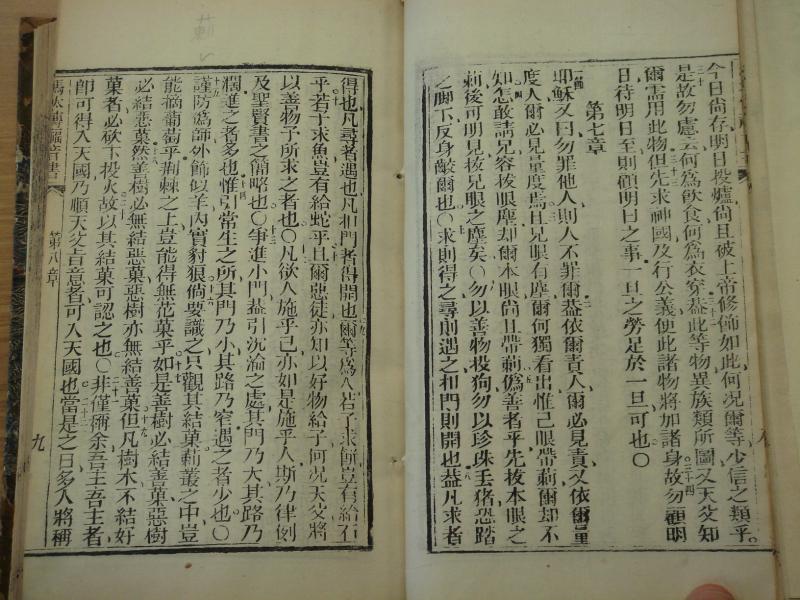 今日尚存明日投爐尚且被上帝修飾如此何况爾等少信之類乎
是故勿慮云何爲飲食何爲衣穿葢此等物異族類所圖又天父知
爾需用此物但先求神國及行公義使此諸物將加諸身故勿顧明
日待明日至則顧明日之事一旦之勞足於一旦可也〇
第七章
耶穌又曰勿罪他人則人不罪爾葢依爾責人爾必見責又依爾量
度人爾必見量度焉且兄眼有塵爾何獨看出惟己眼帶莿爾却不
知怎敢請兄容拔眼塵却爾本眼尙且帶莿僞善者乎先拔本眼之
莿後可明見拔兄眼之塵矣〇勿以善物投狗勿以珍珠丢猪恐踏
之脚下反身齩爾也〇求則得之尋則遇之扣門則開也葢凡求者
得也凡尋者遇也凡扣門者得開也爾等爲人者子求餅豈有給石
乎若子求魚豈有給蛇乎且爾惡徒亦知以好物給子何况天父將
以善物予所求之者也〇凡欲人施乎己亦如是施乎人斯乃律例
及聖賢書之簡略也〇爭進小門葢引沉淪之處其門乃大其路乃
濶進之者多也惟引常生之所其門乃小其路乃窄遇之者少也〇
謹防爲師外飾似羊内實豺狼倘要識之只觀其結菓莿叢之中豈
能摘葡萄乎荆棘之上豈能得無花菓乎如是善樹必結善菓惡樹
必結惡菓然善樹必無結惡菓惡樹亦無結善菓但凡樹木不結好
菓者必砍下投火故以其結菓可認之也〇非僅稱余吾主吾主者
卽可得入天國乃順天父旨意者可入天國也當是之日多人將稱
馬太傳福音書
第八章
九